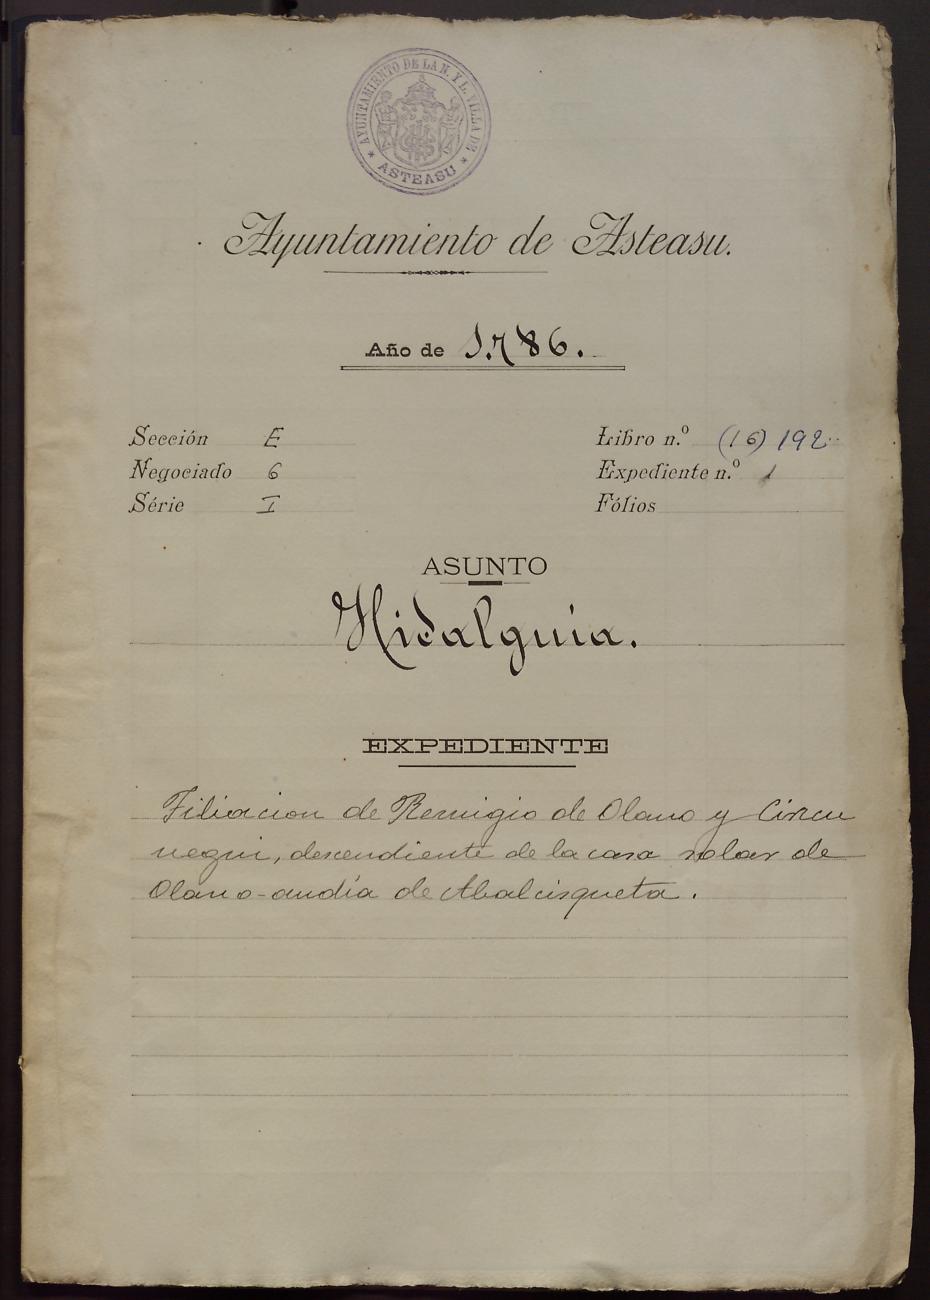 AYUNTAMIENTO DE LA N. Y L. VILLA DE
* ASTEASU *
Ayuntamiento de Asteasu.
Año de 1.786.
Sección E
Negociado 6
Série I
Libro n.º (16) 192
Expediente n.º 1
Fólios
ASUNTO
Hidalguia.
EXPEDIENTE
Filiacion de Remigio de Olano y Circu
negui, descendiente de la casa solar de
Olano-andía de Abalcisqueta.